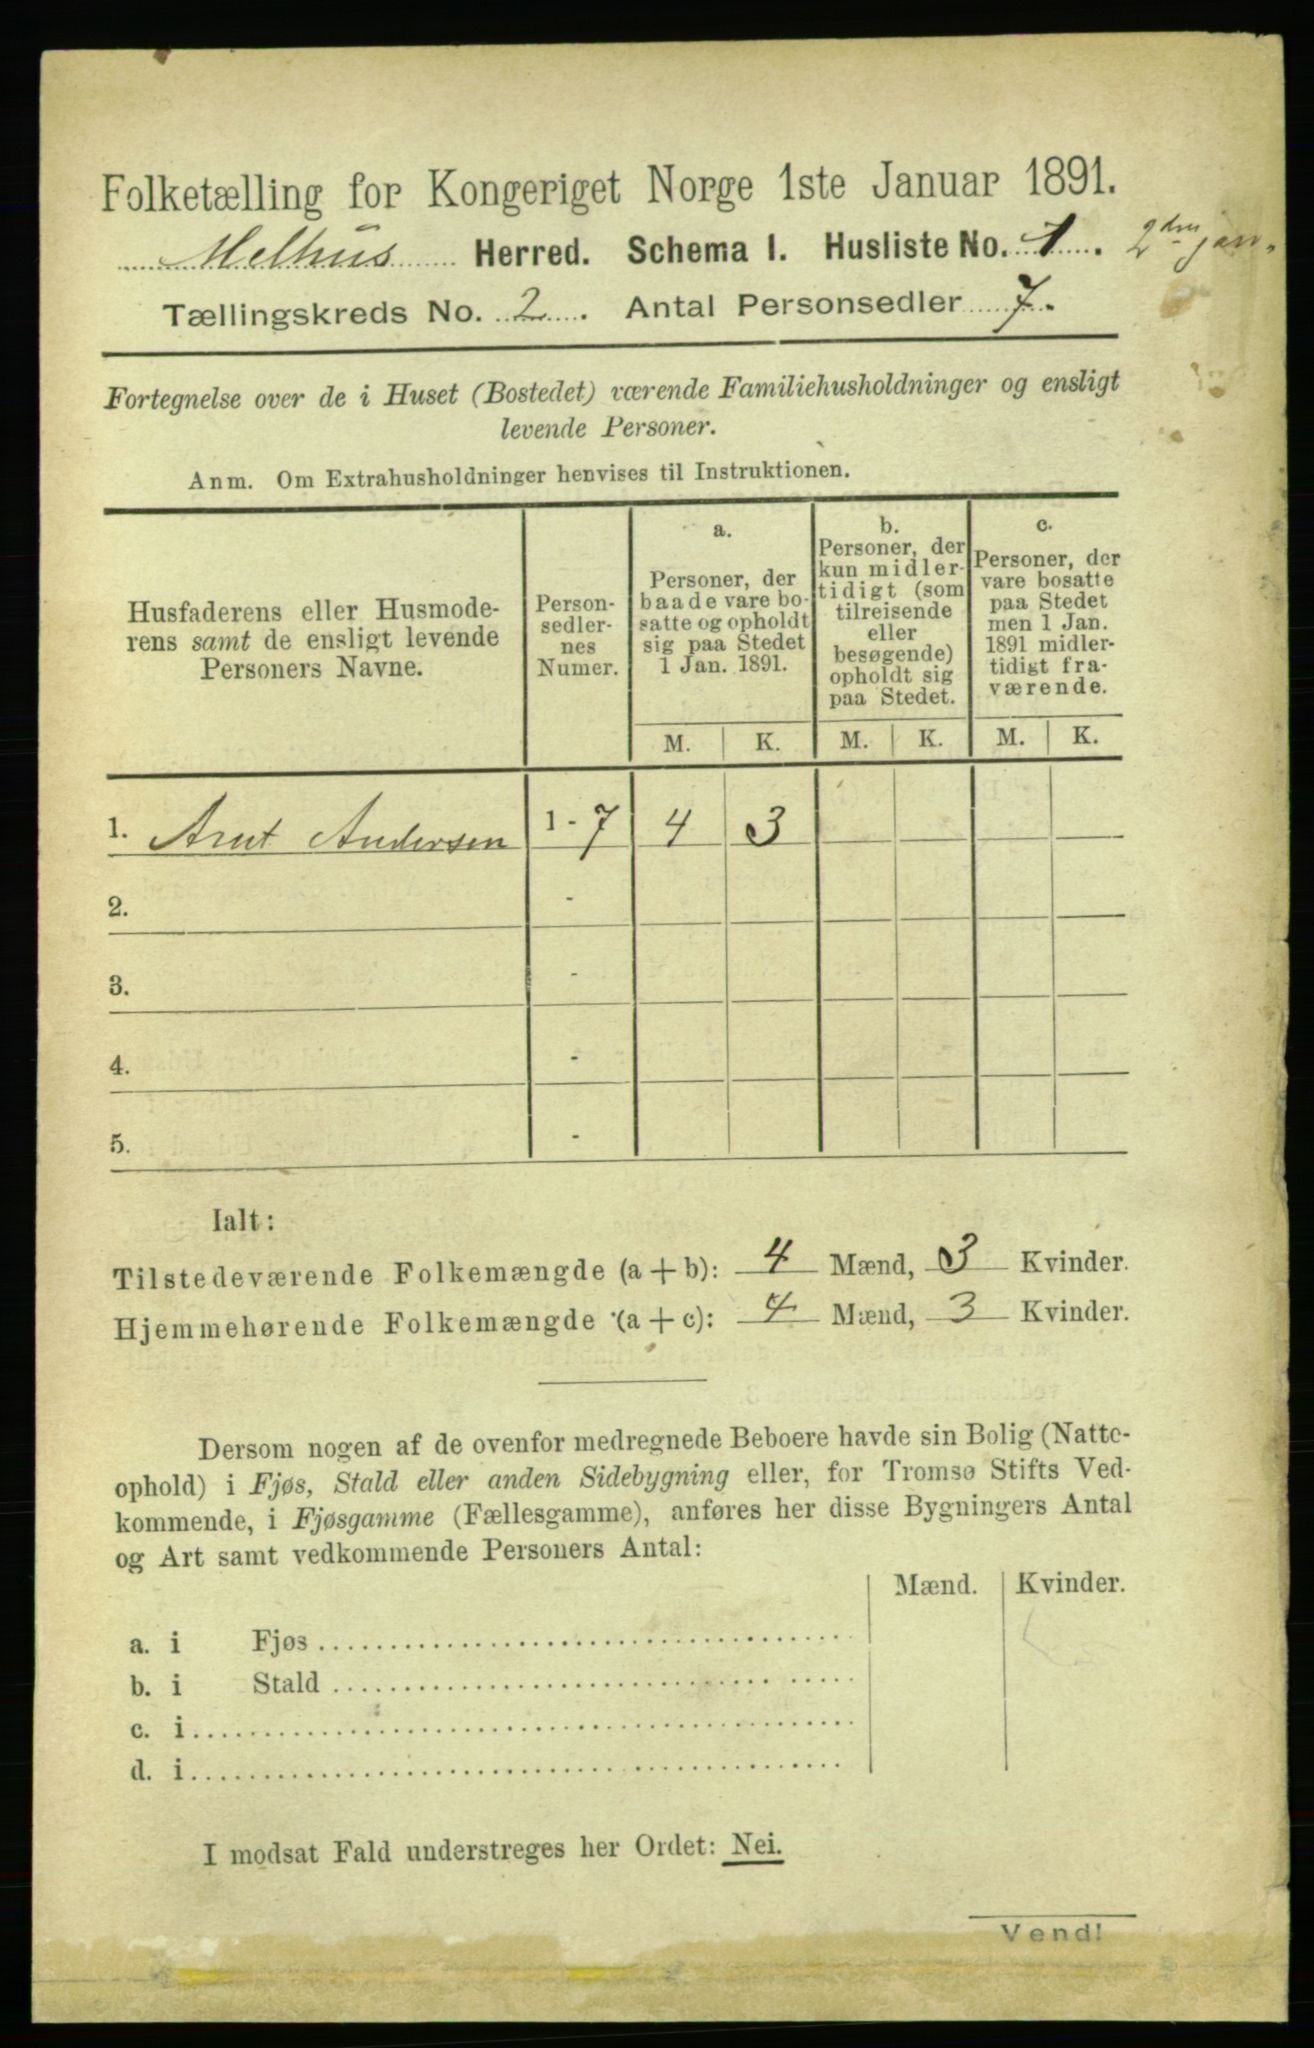 Folketælling for Kongeriget Norge 1ste Januar 1891.
Melhus Herred. Schema I. Husliste No. 1. 2den jan.
Tællingskreds No. 2. Antal Personsedler 7.
Fortegnelse over de i Huset (Bostedet) værende Familiehusholdninger og ensligt
levende Personer.
Anm. Om Extrahusholdninger henvises til Instruktionen.
Husfaderens eller Husmode-
rens samt de ensligt levende
Personers Navne.
Person-
sedler-
nes
Numer.
a.
Personer, der
baade vare bo-
satte og opholdt
sig paa Stedet
1 Jan. 1891.
b.
Personer, der
kun midler-
tidigt (som
tilreisende
eller
besøgende)
opholdt sig
paa Stedet.
c.
Personer, der
vare bosatte
paa Stedet
men 1 Jan.
1891 midler-
tidigt fra-
værende.
M. K. M. K. M. K.
1. Arnt Andersen 1 - 7 4 3
2. -
3. -
4. -
5. -
Ialt:
Tilstedeværende Folkemængde (a + b): 4 Mænd, 3 Kvinder.
Hjemmehørende Folkemængde (a + c): 4 Mænd, 3 Kvinder.
Dersom nogen af de ovenfor medregnede Beboere havde sin Bolig (Natte-
ophold) i Fjøs, Stald eller anden Sidebygning eller, for Tromsø Stifts Ved-
kommende, i Fjøsgamme (Fællesgamme), anføres her disse Bygningers Antal
og Art samt vedkommende Personers Antal:
Mænd. Kvinder.
a. i Fjøs
b. i Stald
c. i
d. i
I modsat Fald understreges her Ordet: Nei.
Vend!